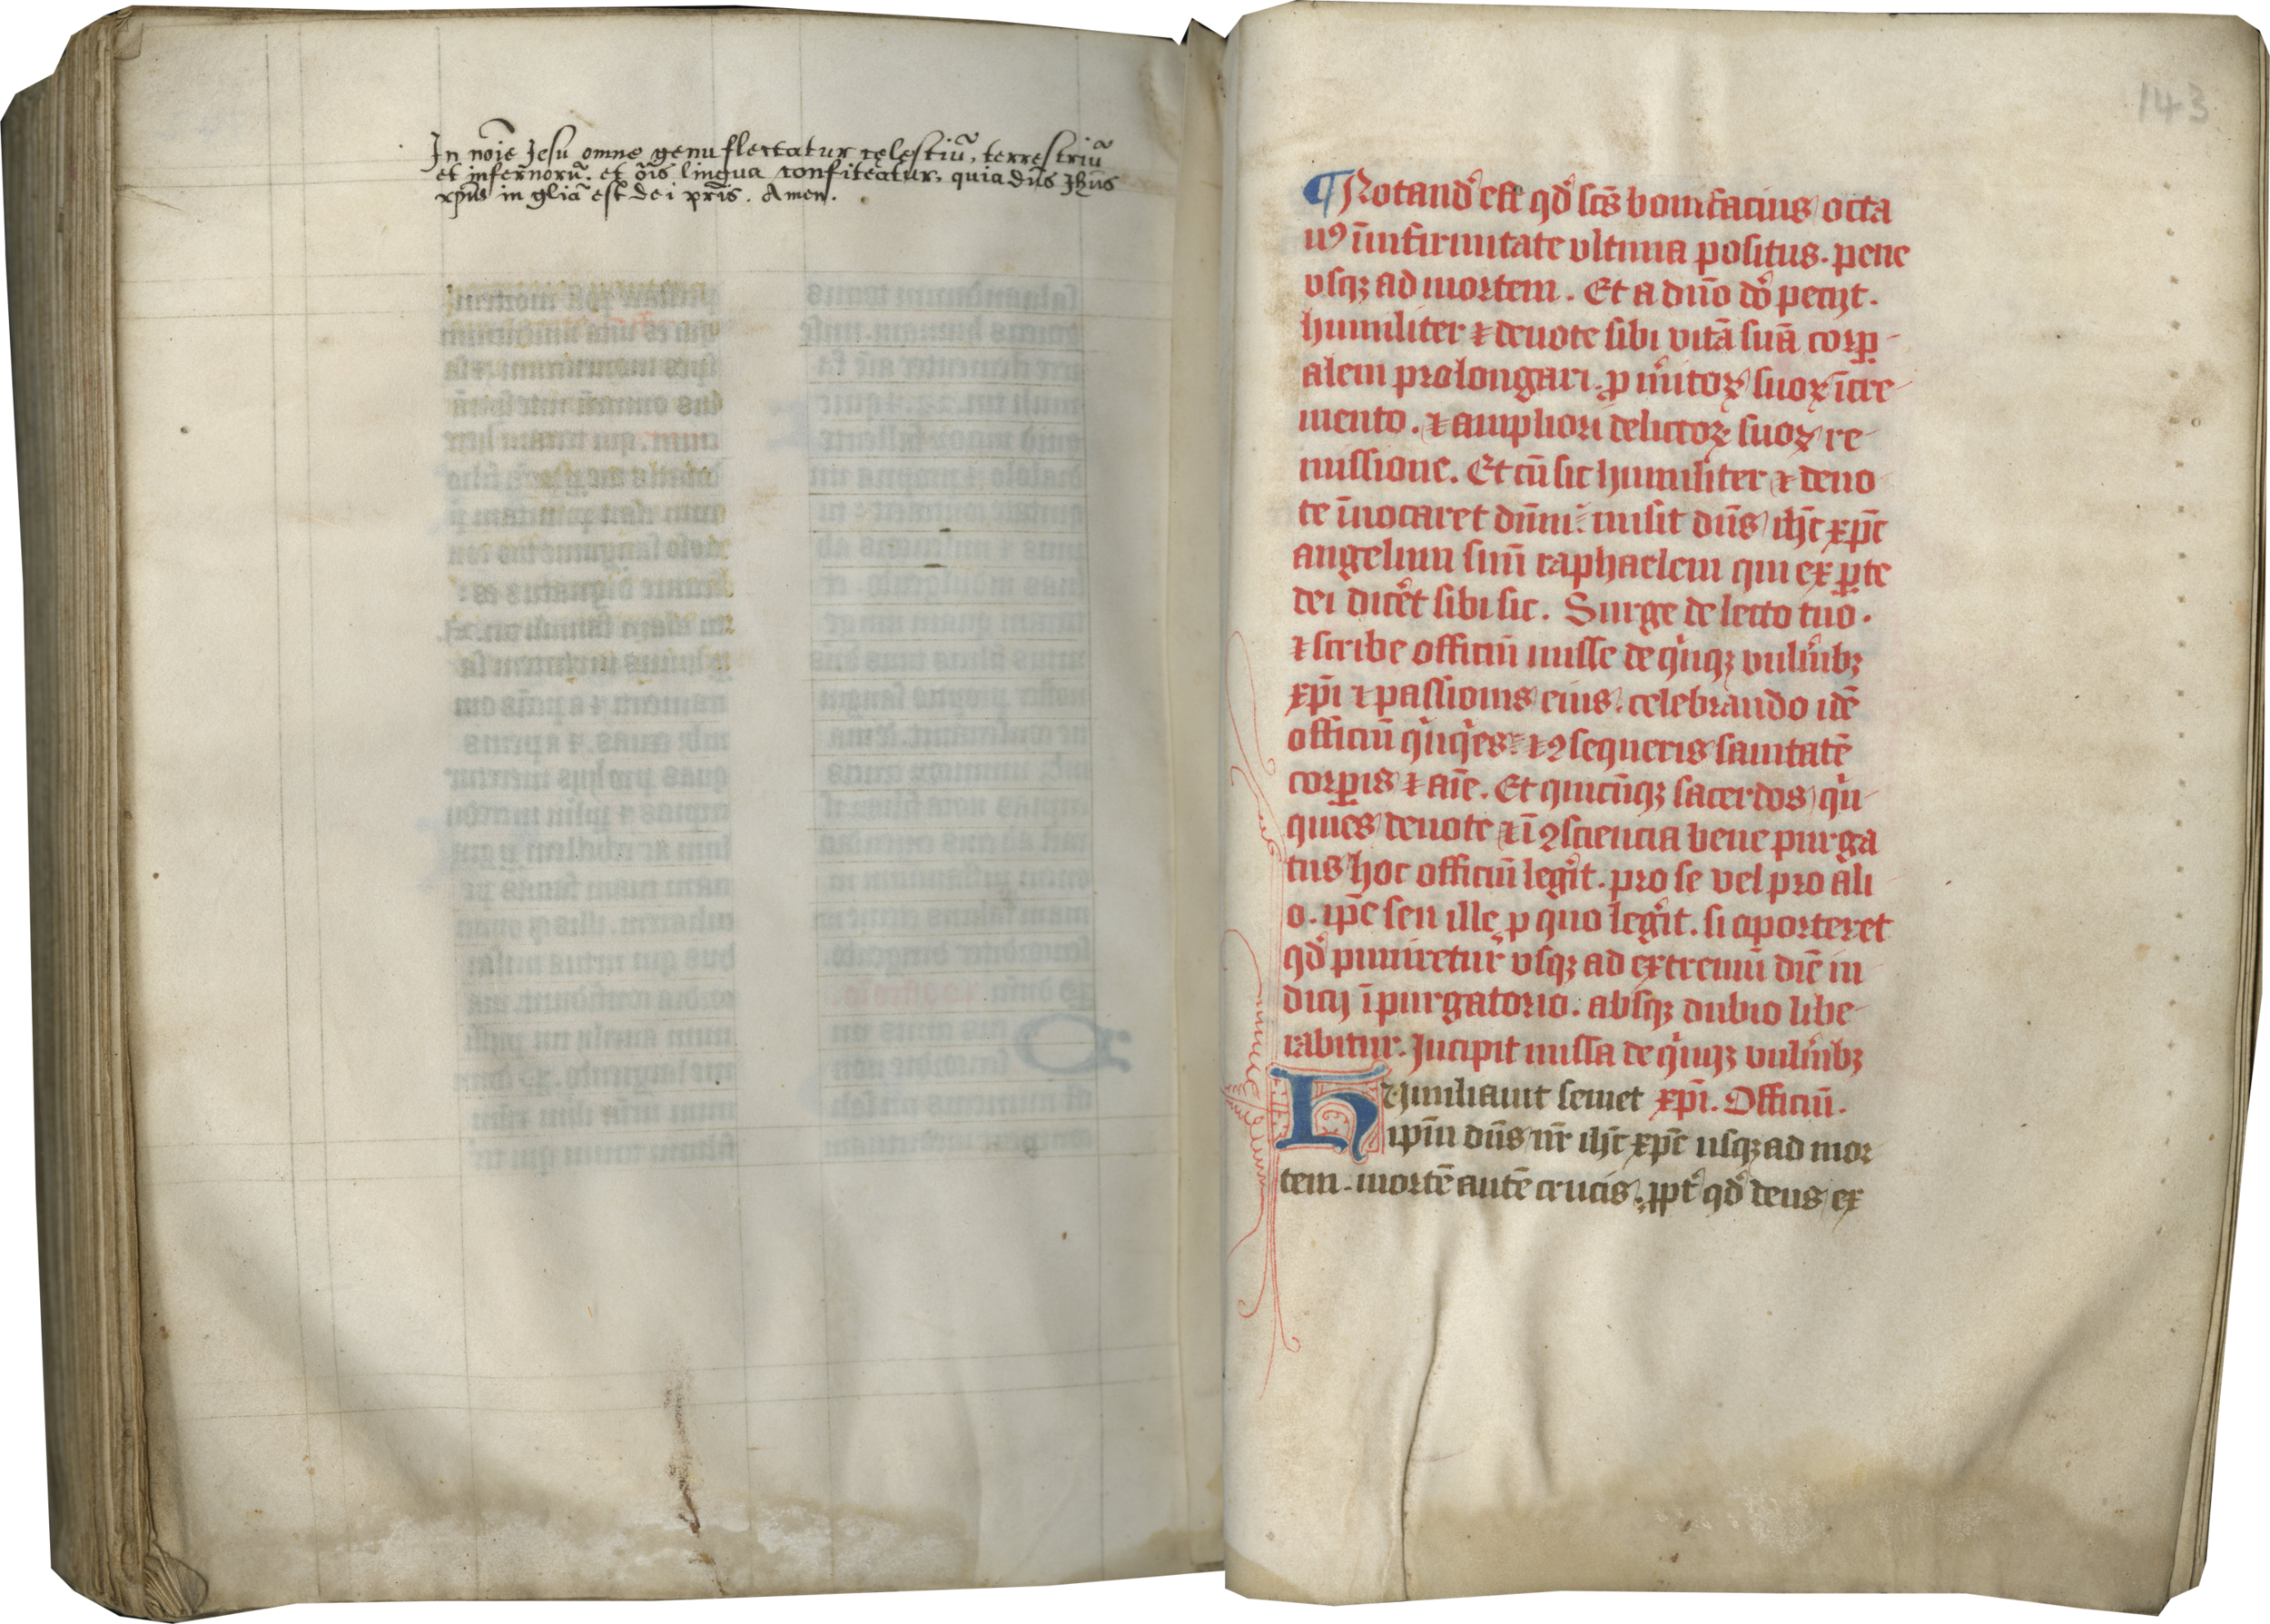 In noīe Jesu omne genu flectatur celestiū, terrestriū
et infernorū. et oīs lingua confiteatur, quia dn̄s Jhūs
xp̄us in gliā est dei pr̄is. Amen.
143
¶ Notand̾ est qd̾ sc̄s bonifacius octa
uꝰ ī infirmitate vltima positus. pene
vsqꝫ ad mortem. Et a dn̄o dō pecijt.
humiliter ⁊ deuote sibi vitā suā corꝑ-
alem prolongari. ꝓ m̄itoꝝ suoꝝ īcre-
mento. ⁊ ampliori delictoꝝ suoꝝ re-
missione. Et cū sic humiliter ⁊ deuo-
te īuocaret dn̄m: misit dn̄s ih̄c xp̄c
angelum suū raphaelem qui ex ꝑte
dei dic̾et sibi sic. Surge de lecto tuo.
⁊ scribe officiū misse de qͥnqꝫ vuln̾ibꝫ
xp̄i ⁊ passionis eius. celebrando idē
officiū qͥnqͥes: ⁊ ꝯsequeris sanitatē
corꝑis ⁊ aīe. Et quicūqꝫ sacerdos qͥn-
quies deuote ⁊ ī ꝯsciencia bene purga
tus hoc officiū leg̾it. pro se vel pro ali
o. ip̄e seu ille ꝓ quo leg̾it. si oporteret
qd̾ puniretur vsqꝫ ad extremū diē iu-
dicij ī purgatorio. absqꝫ dubio libe-
rabitur. Incipit missa de qͥnqꝫ vuln̾ibꝫ
Humiliauit semet xp̄i. Officiū.
ip̄m dn̄s nr̄ ih̄c xp̄c usqꝫ ad mor
tem. mortē autē crucis. ꝓpt̾ qd̾ deus ex